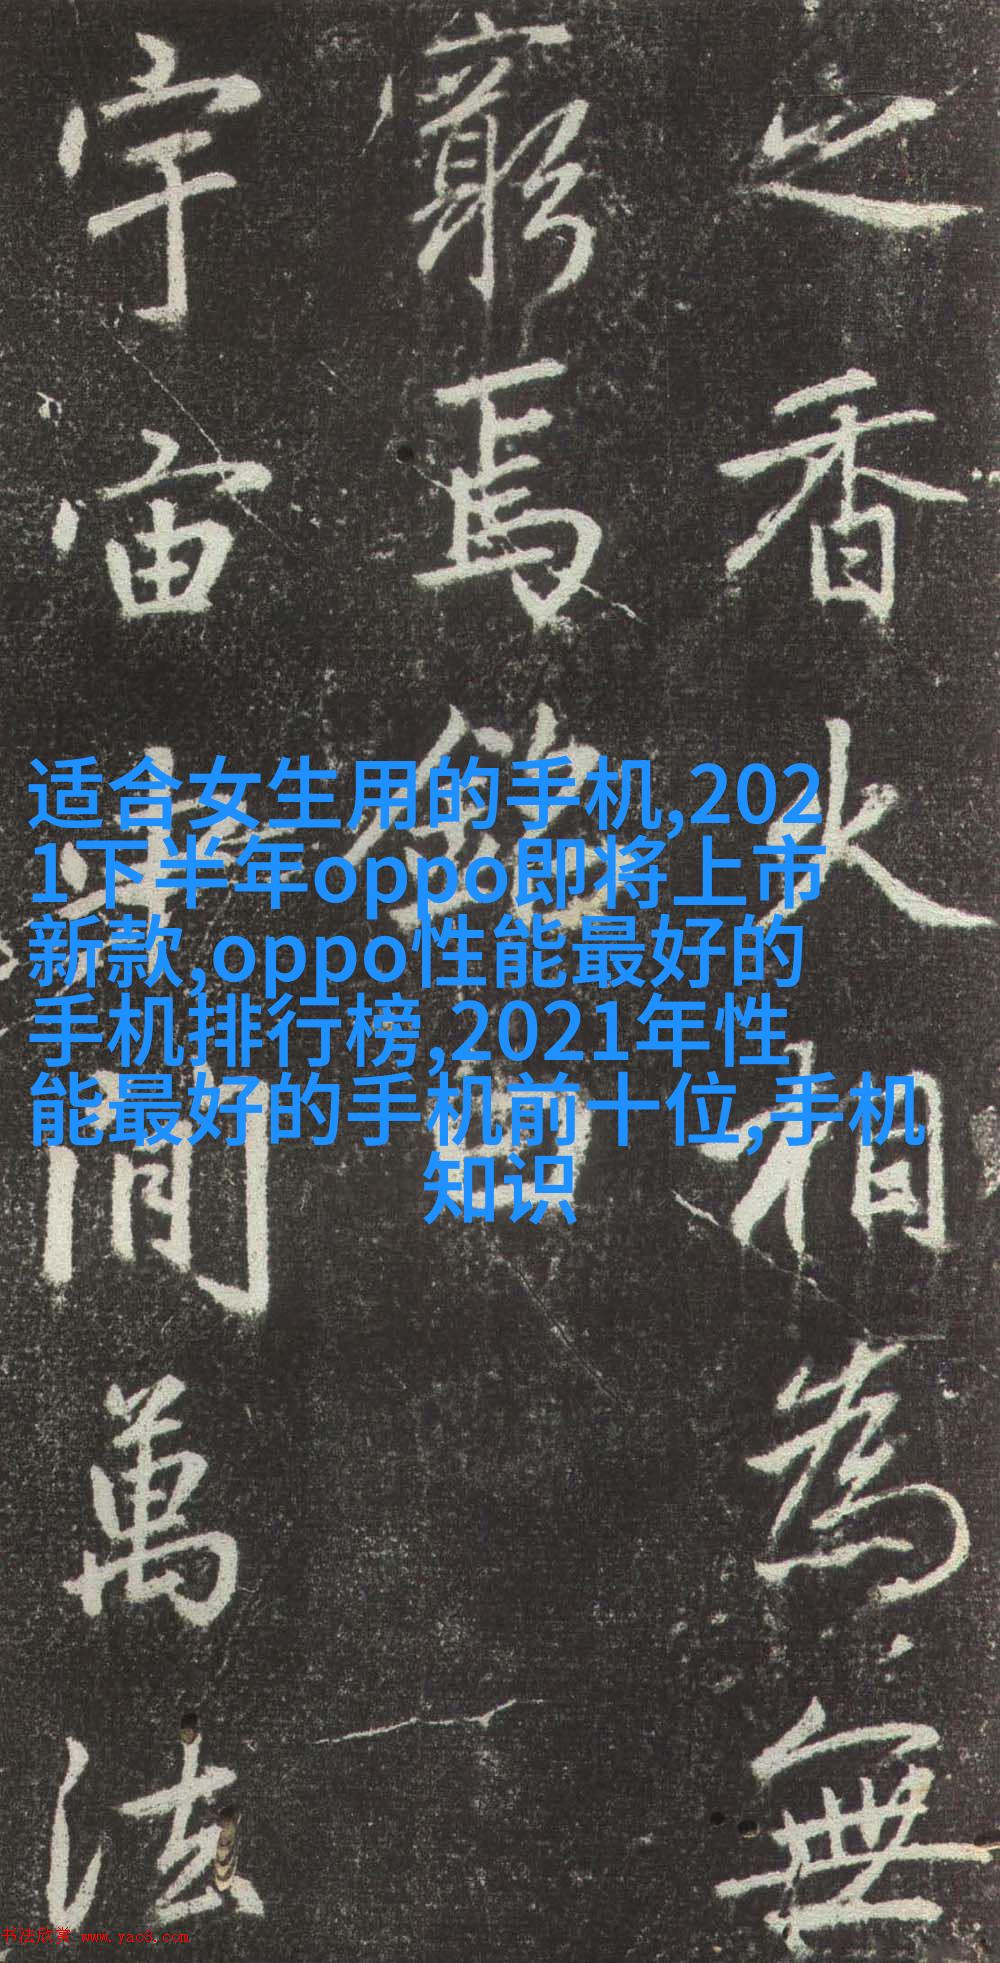 之香火相為無
窮焉銘曰
宇宙間萬法
适合女生用的手机,202
1下半年oppo即将上市
新款,oppo性能最好的
手机排行榜,2021年性
能最好的手机前十位,手机
知识
书法欣赏 www.yac8.com